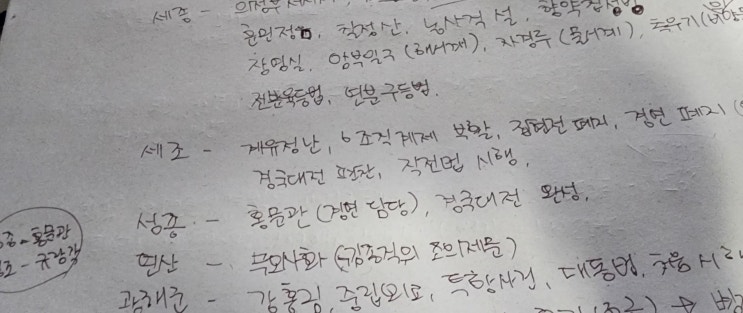 세종 - 의정부서사제
훈민정음, 칠정산, 농사직설, 향약집성방
장영실, 앙부일구(해시계), 자격루(물시계), 측우기
전분육등법, 연분구등법.
세조 - 계유정난, 6조직계제 부활, 집현전 폐지, 경연 폐지
경국대전 편찬, 직전법 시행.
성종 - 홍문관(경연 담당), 경국대전 완성.
연산 - 무오사화(김종직의 조의제문)
광해군 - 강홍립, 중립외교, 대동법, 처음 시행
성종 - 홍문관
정조 - 규장각